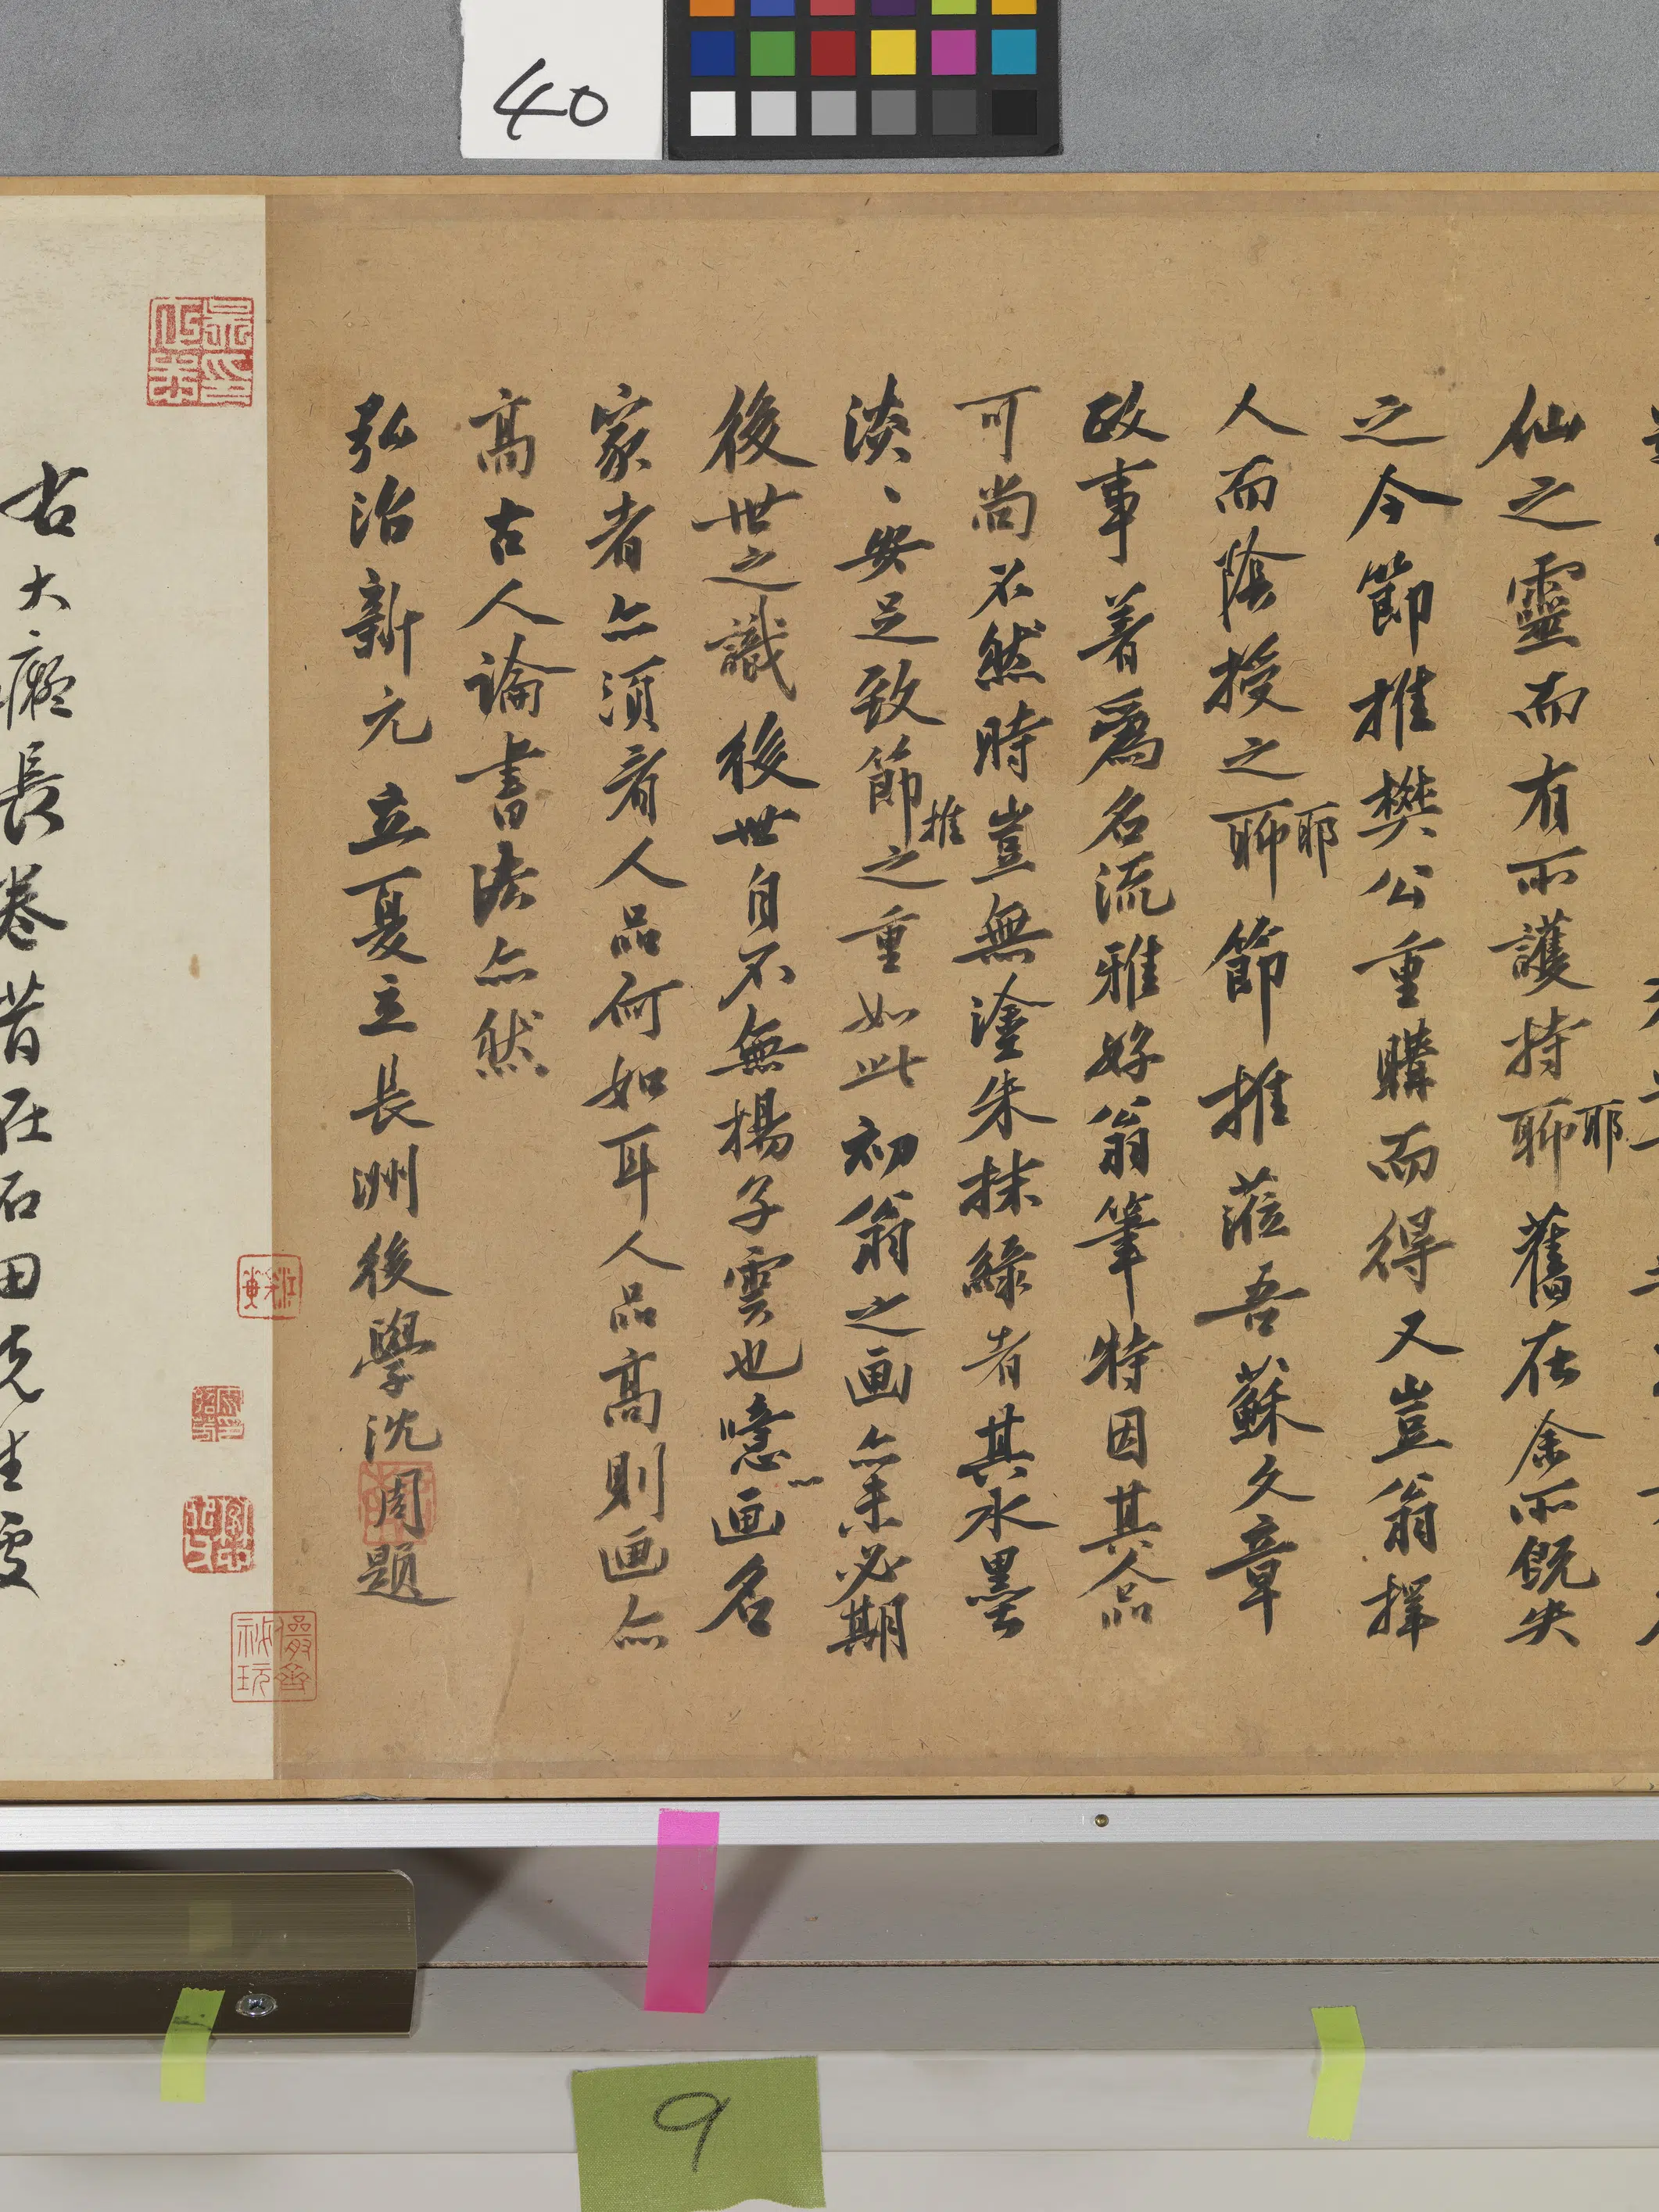 40
仙之靈而有所護持聊耶舊在余所既失
之今節推樊公重購而得又豈翁擇
人而陰授之聊耶節推蒞吾蘇文章
政事著爲名流雅好翁筆特因其人品
可尚不然時豈無塗朱抹綠者其水墨
淡、安足致節推之重如此初翁之画亦未必期
後世之識後世自不無揚子雲也噫画名
家者亦須看人品何如耳人品高則画亦
高古人論書法亦然
弘治新元立夏立長洲後學沈周題
右大癡長卷昔在石田先生處
9